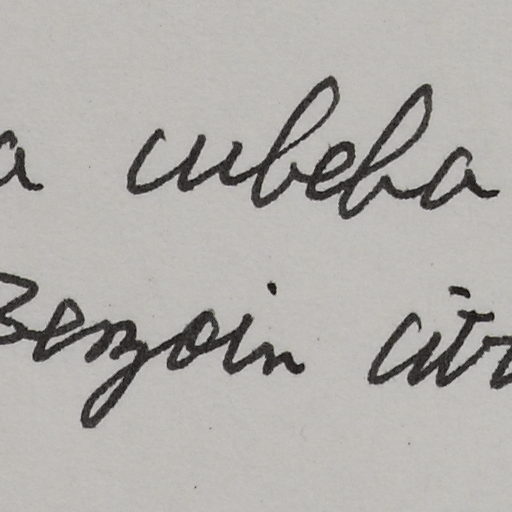 a cubeba
Benzoin citr